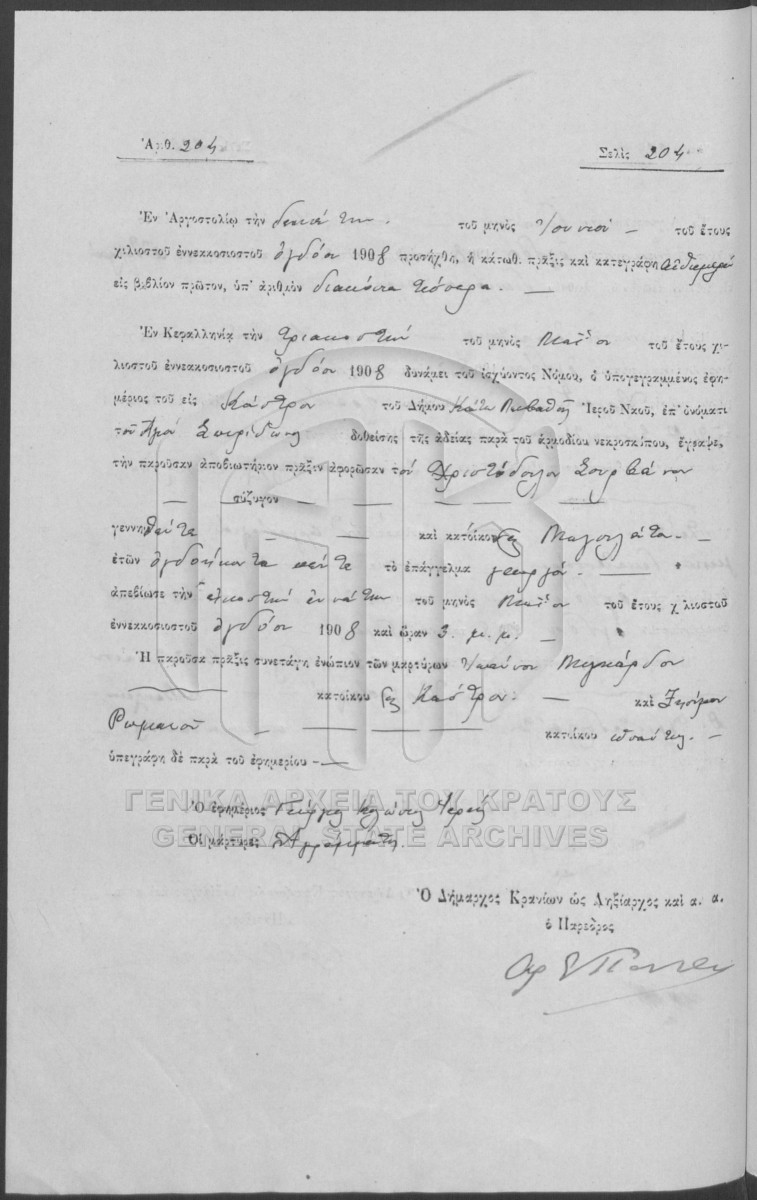 Ἀριθ. 204
Σελὶς 204
Ἐν Ἀργοστολίῳ τὴν δεκάτην τοῦ μηνὸς Ἰουνίου τοῦ ἔτους
χιλιοστοῦ ἐννεακοσιοστοῦ ὀγδόου 1908 προσήχθη, ἡ κάτωθ. πρᾶξις καὶ κατεγράφη αὐθημερόν
εἰς βιβλίον πρῶτον, ὑπ' ἀριθμὸν διακόσια τέσσερα.
Ἐν Κεφαλληνίᾳ τὴν τριακοστὴν τοῦ μηνὸς Μαΐου τοῦ ἔτους χι-
λιοστοῦ ἐννεακοσιοστοῦ ὀγδόου 1908 δυνάμει τοῦ ἰσχύοντος Νόμου, ὁ ὑπογεγραμμένος ἐφη-
μέριος τοῦ εἰς Κάστρον τοῦ Δήμου Κάτω Λειβαθοῦς Ἱεροῦ Ναοῦ, ἐπ' ὀνόματι
τοῦ Ἁγίου Σπυρίδωνος δοθείσης τῆς ἀδείας παρὰ τοῦ ἁρμοδίου νεκροσκόπου, ἔγραψε,
τὴν παροῦσαν ἀποβιωτήριον πρᾶξιν ἀφορῶσαν τὸν Χριστόδουλον Σουρβάνον
σύζυγον
γεννηθέντα καὶ κατοίκου εἰς Μαζουλάτα.
ἐτῶν ὀγδοήκοντα πέντε τὸ ἐπάγγελμα γεωργόν.
ἀπεβίωσε τὴν εἰκοστὴν ἐνάτην τοῦ μηνὸς Μαΐου τοῦ ἔτους χιλιοστοῦ
ἐννεακοσιοστοῦ ὀγδόου 1908 καὶ ὥραν 3. μ. μ.
Ἡ παροῦσα πρᾶξις συνετάγη ἐνώπιον τῶν μαρτύρων
κατοίκου εἰς Κάστρον. καὶ
Ρωμανοῦ κατοίκου ὡσαύτως.
ὑπεγράφη δὲ παρὰ τοῦ ἐφημερίου
Ὁ ἐφημέριος Γεώργιος Ἱερεύς
Οἱ μάρτυρες Ἀγράμματοι.
ΓΕΝΙΚΑ ΑΡΧΕΙΑ ΤΟΥ ΚΡΑΤΟΥΣ
GENERAL STATE ARCHIVES
Ὁ Δήμαρχος Κρανίων ὡς Ληξίαρχος καὶ α. α.
ὁ Πάρεδρος